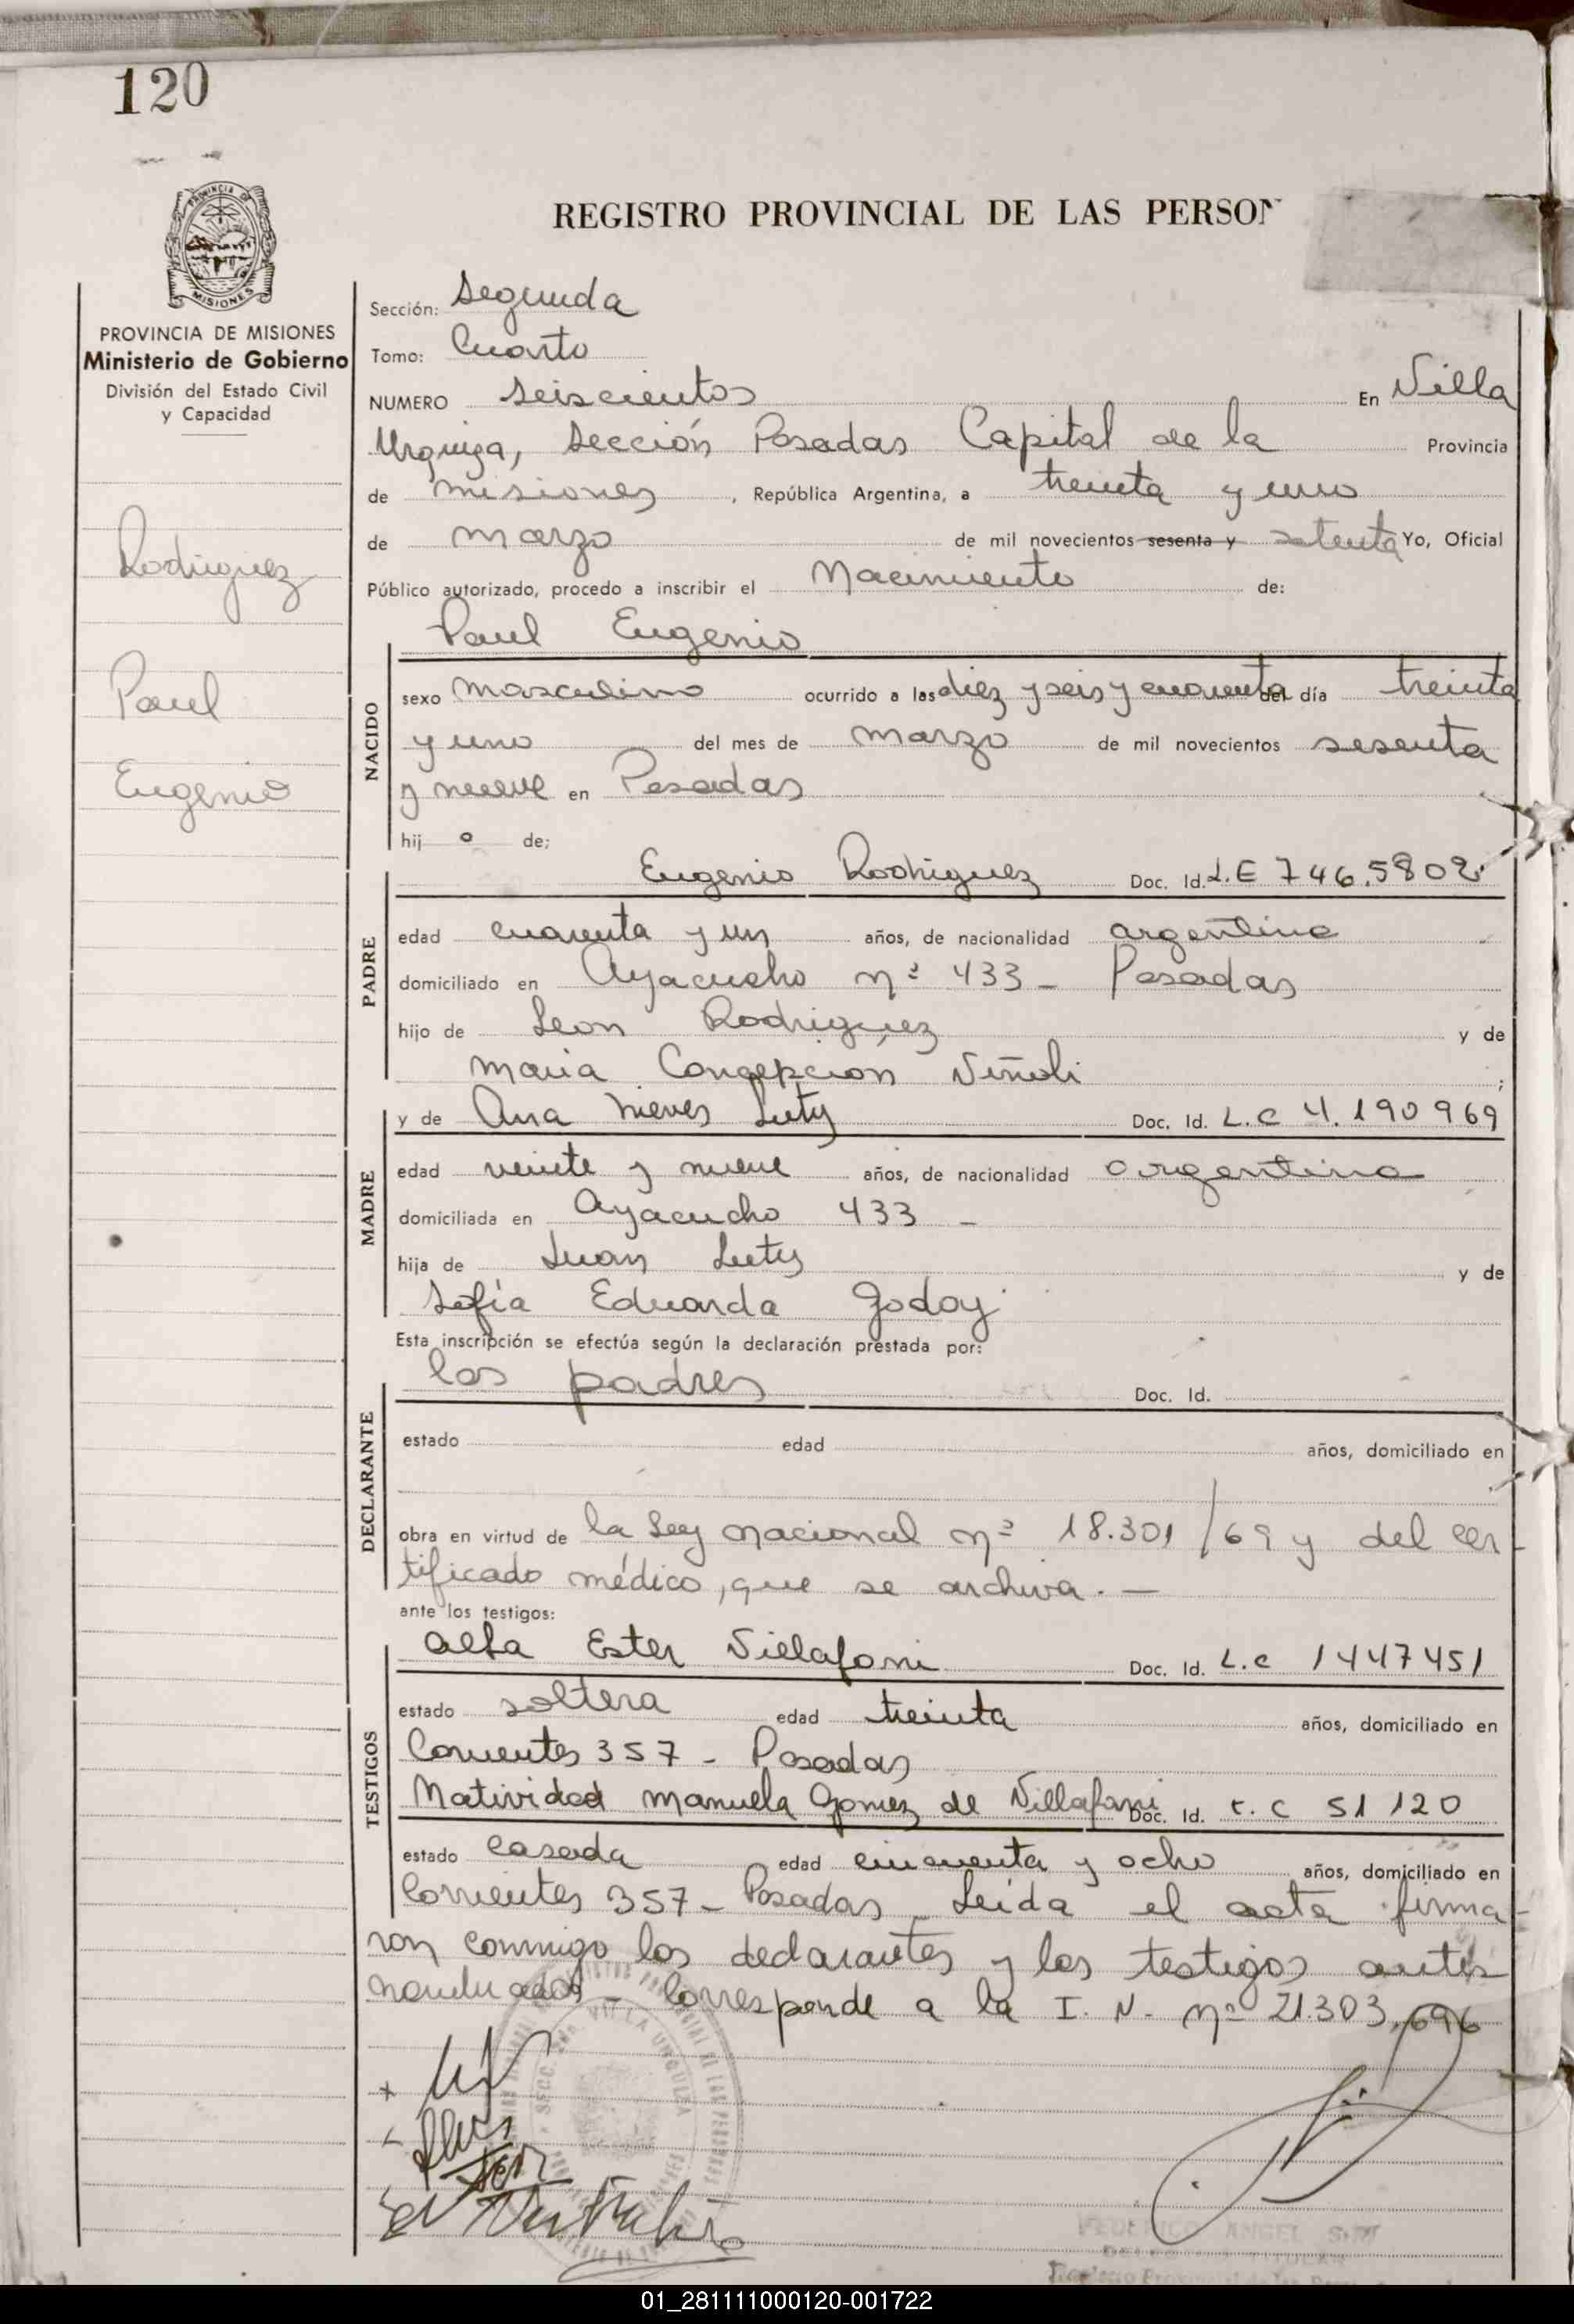 120
PROVINCIA DE MISIONES
REGISTRO PROVINCIAL DE LAS PERSON
PROVINCIA DE MISIONES
Ministerio de Gobierno
División del Estado Civil
y Capacidad
Rodriguez
Paul
Eugenio
Sección: Segunda
Tomo: Cuarto
NUMERO Seiscientos En Villa
Urquiza, Sección Posadas Capital de la Provincia
de misiones, República Argentina, a treinta y uno
de marzo de mil novecientos sesenta y setenta Yo, Oficial
Público autorizado, procedo a inscribir el Nacimiento de:
Paul Eugenio
NACIDO
sexo masculino ocurrido a las diez y seis y cuarenta del día treinta
y uno del mes de marzo de mil novecientos sesenta
y nueve en Posadas
hij o de;
Eugenio Rodriguez Doc. Id. L.E 746.5802
PADRE
edad cuarenta y un años, de nacionalidad argentina
domiciliado en Ayacucho nº 433 - Posadas
hijo de Leon Rodriguez y de
Maria Concepción Viñoli ;
y de Ana Nieves Luty Doc. Id. L.C 4.190969
MADRE
edad veinte y nueve años, de nacionalidad argentina
domiciliada en Ayacucho 433 -
hija de Juan Luty y de
Sofía Eduarda Godoy
Esta inscripción se efectúa según la declaración prestada por:
los padres Doc. Id.
DECLARANTE
estado edad años, domiciliado en
obra en virtud de la Ley nacional nº 18.301/69 y del cer-
tificado médico, que se archiva. —
ante los testigos:
TESTIGOS
Alba Ester Villafañi Doc. Id. L.C 1447451
estado soltera edad treinta años, domiciliado en
Corrientes 357 - Posadas
Natividad Manuela Gomez de Villafañi Doc. Id. C 51120
estado casada edad cincuenta y ocho años, domiciliado en
Corrientes 357 - Posadas - Leida el acta firma-
ron conmigo los declarantes y los testigos antes
nombrados - Corresponde a la I. N. nº 21.303.696
VILLA URQUIZA
FEDERICO ANGEL
01_281111000120-001722